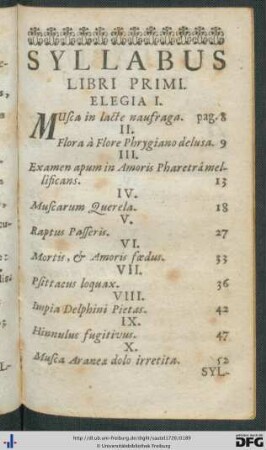 SYLLABUS
LIBRI PRIMI.
ELEGIA I.
MUsca in lacte naufraga. pag. 8
II.
Flora à Flore Phrygiano delusa. 9
III.
Examen apum in Amoris Pharetrâ mel-
lificans. 13
IV.
Muscarum Querela. 18
V.
Raptus Passeris. 27
VI.
Mortis, & Amoris fœdus. 33
VII.
Psittacus loquax. 36
VIII.
Impia Delphini Pietas. 42
IX.
Hinnulus fugitivus. 47
X.
Musca Aranea dolo irretita. 52
SYL-
© Universitätsbibliothek Freiburg
DFG